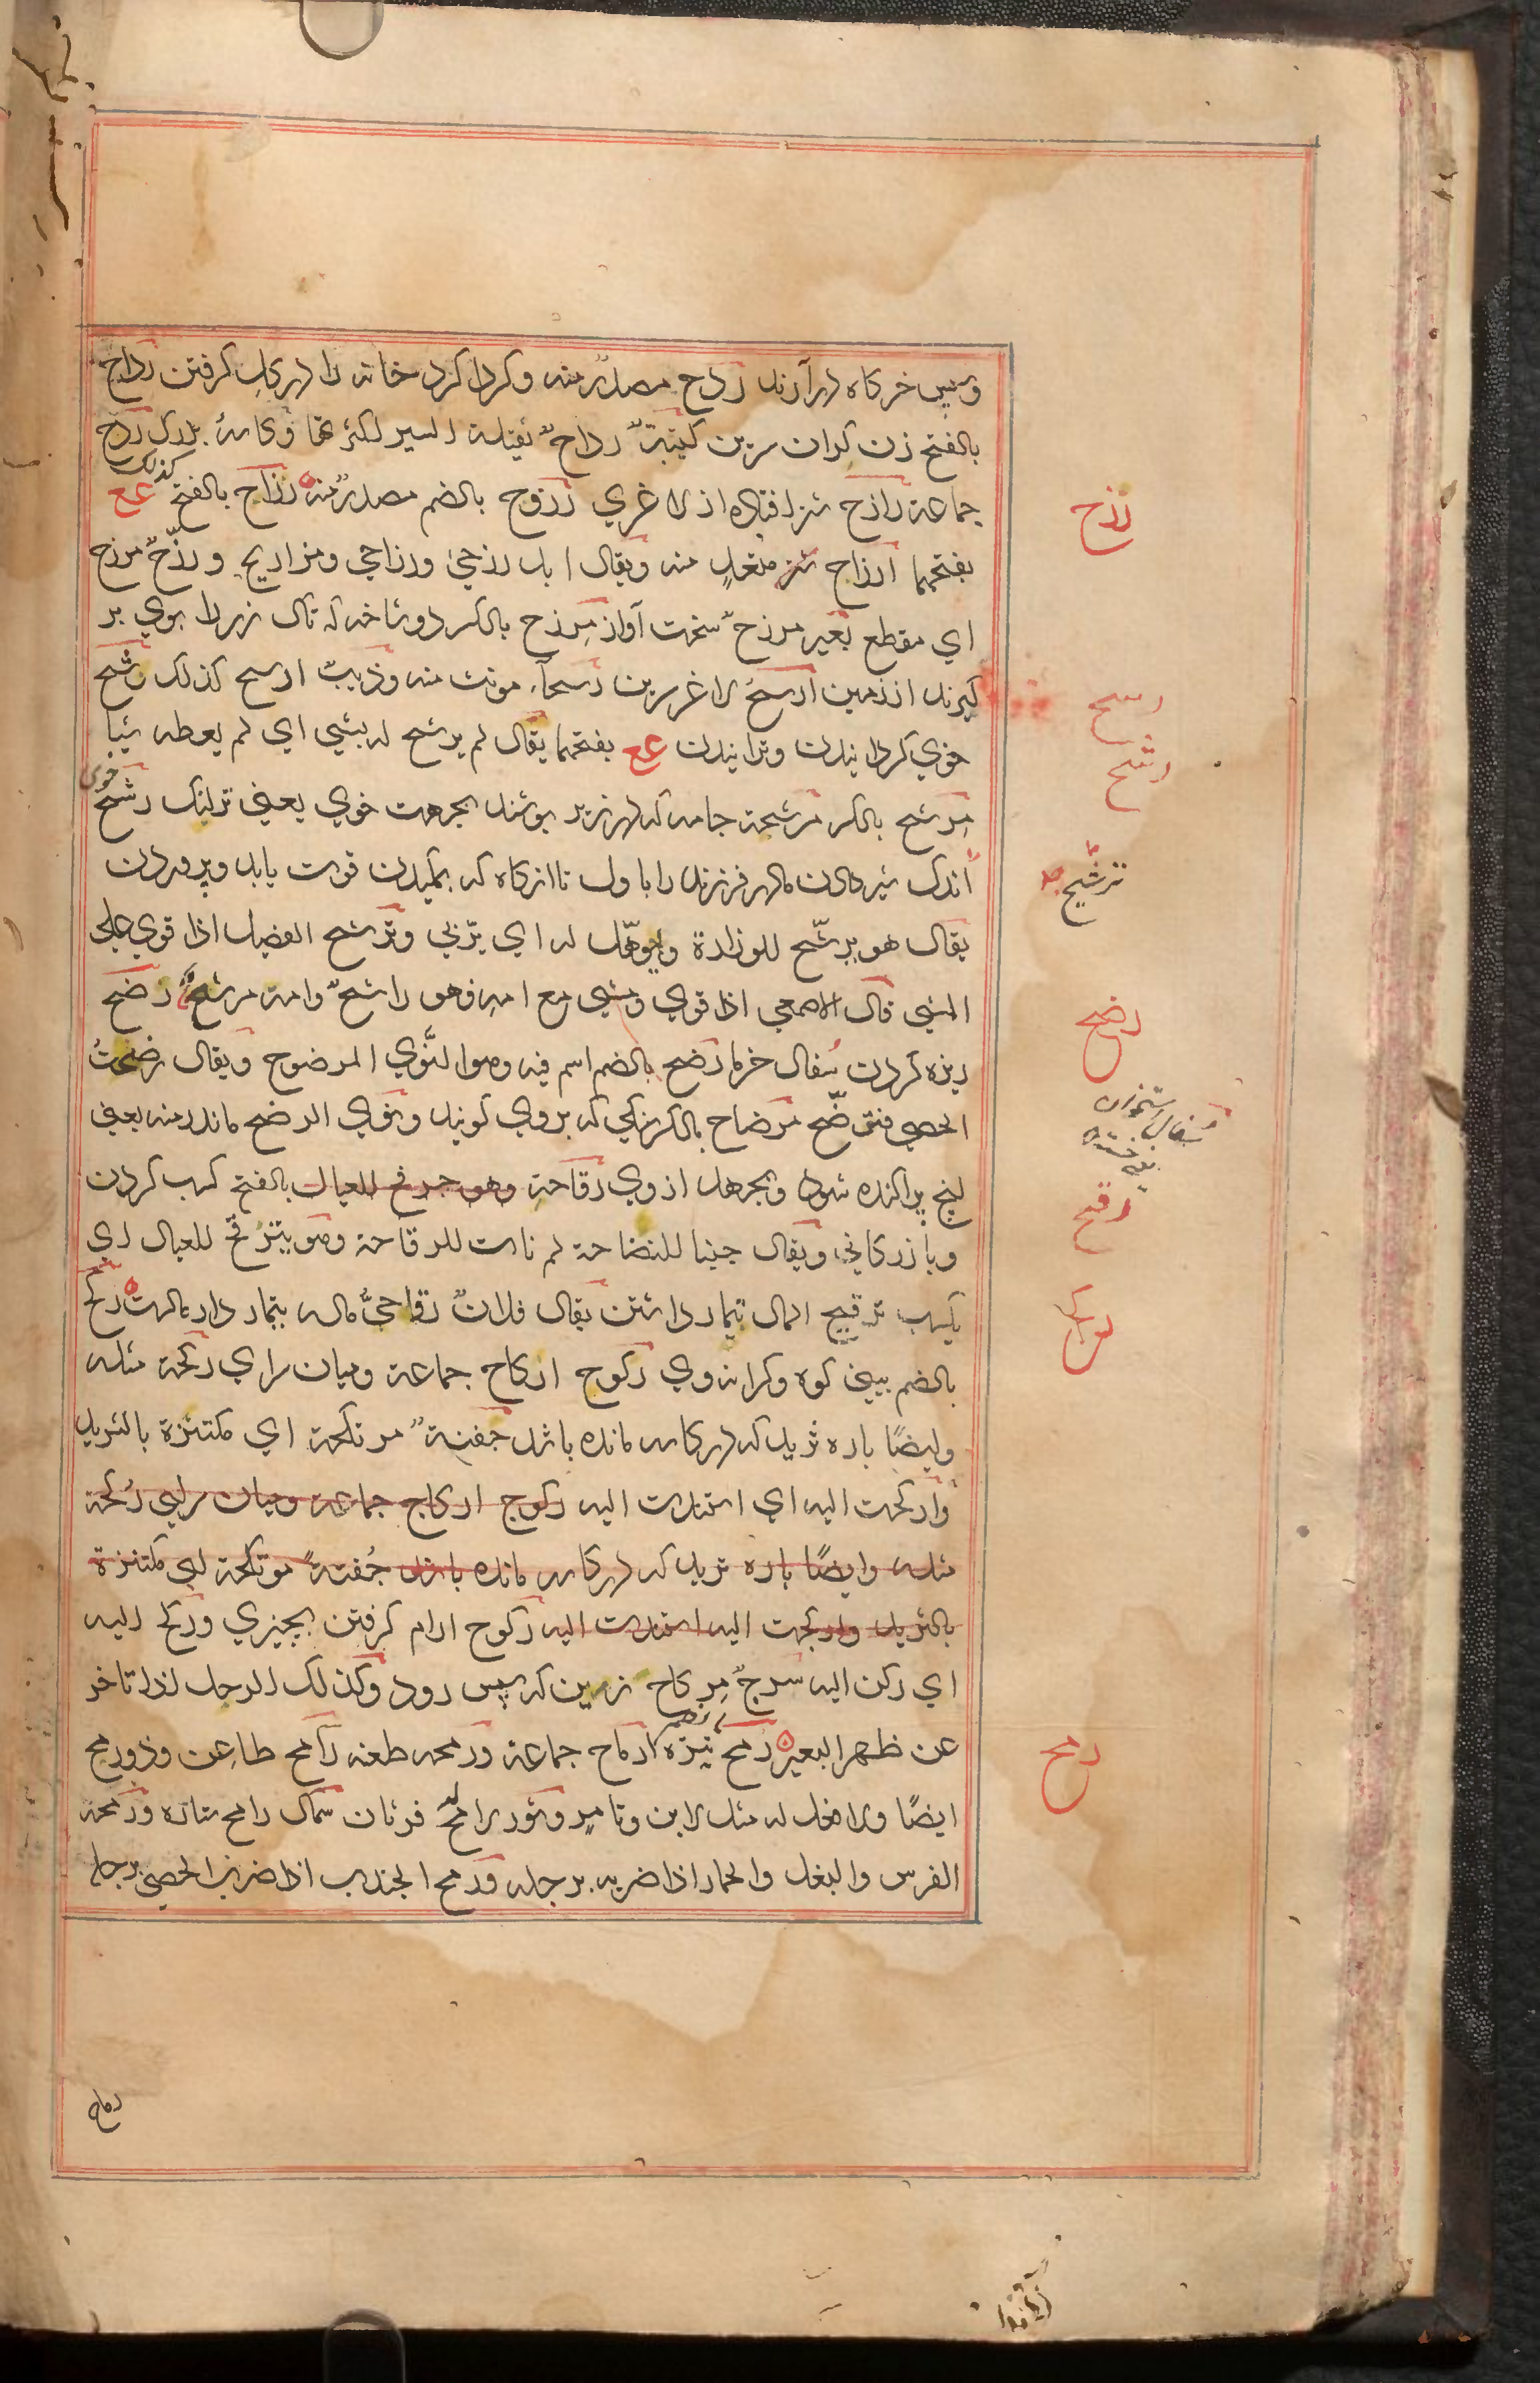 وپس خرکاه درآرند ردح مصدر منه وکرداکرد خانه را درکل کرفتن رداح
بالفتح زن کران سرین کتیبة رداح ثقیلة السیر لکثرتها وکاسهٔ بزرک ردح
کذلک
جماعة رازح شتر افتاده از لاغری رزوح بالضم مصدر منه رزاح بالفتح عع
بفتحهما ارزاح شتر منغل منه ویقال ابل رزحی ورزاحی ومرازیح ورزح مرزح
ای مقطع بعیر مرزح سخت آواز مرزح بالکسر دوشاخه که تاک زر را بوی بر
کیرند از زمین ارسح لاغر سرین رسحاء مونث منه وذیب ارسح کذلک رشح
خوی کردانیدن وترانیدن عع بفتحهما یقال لم یرشح له بشیی ای لم یعطه شیا
خوی
مرشح بالکسر مرشحة جامه که درزیر پوشند بجهت خوی یعنی ترلیک رشح
اندک شیر دادن مادر فرزند را باول تا انرکاه که بمکیدن قوت یابد وپروردن
یقال هو یرشح للوزارة ویوهل له ای یربی وترشح الفصیل اذا قوی علی
المشی قال الاصمعی اذا قوی ومشی مع امه فهو راشح وامه مرشح رضح
ریزه کردن سفال خرما رضح بالضم اسم فیه وهو النوی المرضوح ویقال رضحت
الحصی فترضح مرضاح بالکسر سنکی که بروی کوبند ونوی الرضح ماندر منه یعنی
انچ پراکنده شود وبجهد از وی رقاحة وهو جرفح للعیال بالفتح کسب کردن
وبازرکانی ویقال جینا للنضاحة لم نات للرقاحة وهو یترقح للعیال ای
یکسب ترقیح المال تیمار داشتن یقال فلان رقاحی ماله بتیمار دار مالست رکح
بالضم بینی کوه وکرانه وی رکوح ارکاح جماعة ومیان سرای رکحة مثله
وایضا باره ثرید که درکاسه مانده باشد جفنة مرتکحة ای مکتنزة بالثرید
وارکحت الیه ای استندت الیه رکوح ارکاح جماعة ومیان سرای رکحة
مثله وایضا باره ثرید که درکاسه مانده باشد جفنة مرتکحة ای مکتنزة
بالثرید وارکحت الیه استندت الیه رکوح ارام کرفتن بچیزی ورکح الیه
ای رکن الیه سرج مرکاح زین که سپس رود وکذلک الرحل اذا تاخر
عن ظهر البعیر رمح نیزه ارماح جماعة ورمحه طعنه رامح طاعن وذو رمح
ایضا ولا فعل له مثل لابن وتامر وثور رامح له قرنان سماک رامح ستاره ورمحة
الفرس والبغل والحمار اذا ضربه برجله ورمح الجندب اذا ضرب الحصی برجله
رزح
رسح
رشح
ترشیح
رضح
رقح
رکح
رمح
رماح